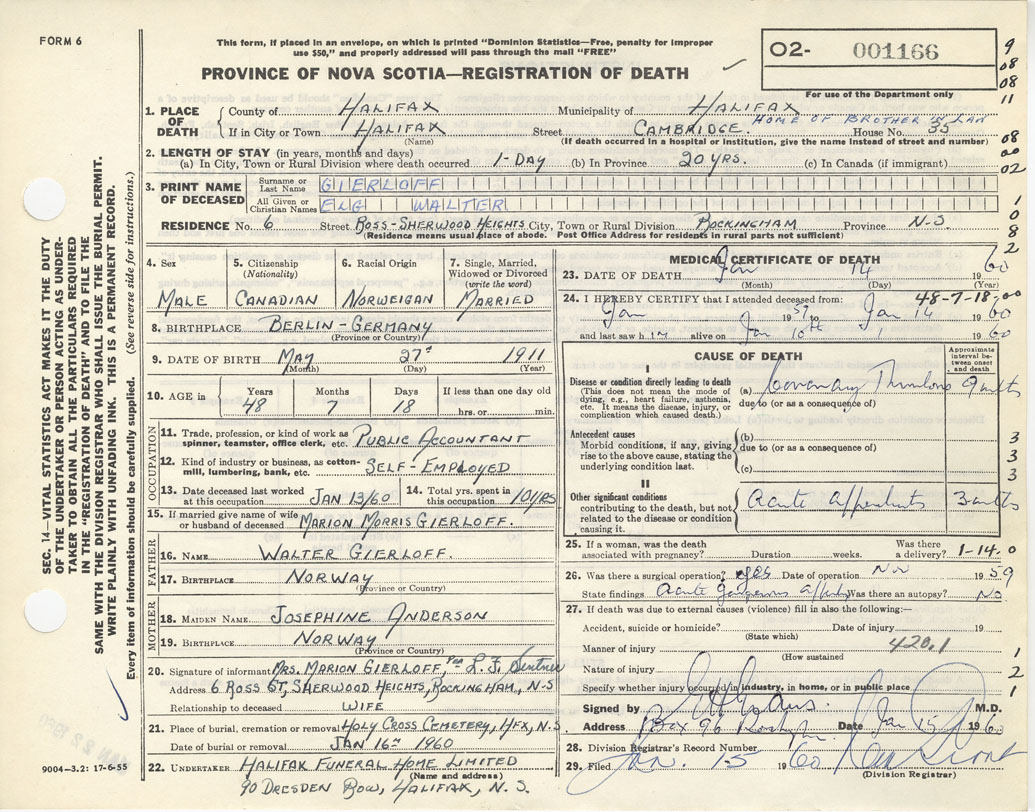 FORM 6
This form, if placed in an envelope, on which is printed "Dominion Statistics—Free, penalty for improper
use $50," and properly addressed will pass through the mail "FREE"
PROVINCE OF NOVA SCOTIA—REGISTRATION OF DEATH
02- 001166
For use of the Department only
9
08
08
11
08
00
02
1
0
8
2
SEC. 14—VITAL STATISTICS ACT MAKES IT THE DUTY
OF THE UNDERTAKER OR PERSON ACTING AS UNDER-
TAKER TO OBTAIN ALL THE PARTICULARS REQUIRED
IN THE "REGISTRATION OF DEATH" AND TO FILE THE
SAME WITH THE DIVISION REGISTRAR WHO SHALL ISSUE THE BURIAL PERMIT.
WRITE PLAINLY WITH UNFADING INK. THIS IS A PERMANENT RECORD.
Every item of information should be carefully supplied. (See reverse side for instructions.)
1. PLACE OF DEATH
County of HALIFAX Municipality of HALIFAX
HOME OF BROTHER IN LAW
If in City or Town HALIFAX Street CAMBRIDGE. House No. 35
(Name) (If death occurred in a hospital or institution, give the name instead of street and number)
2. LENGTH OF STAY (in years, months and days)
(a) In City, Town or Rural Division where death occurred 1-DAY (b) In Province 20 YRS. (c) In Canada (if immigrant)
3. PRINT NAME OF DECEASED
Surname or Last Name GIERLOFF
All Given or Christian Names ELG WALTER
RESIDENCE No. 6 Street ROSS-SHERWOOD HEIGHTS City, Town or Rural Division ROCKINGHAM Province N.S
(Residence means usual place of abode. Post Office Address for residents in rural parts not sufficient)
4. Sex MALE
5. Citizenship (Nationality) CANADIAN
6. Racial Origin NORWEIGAN
7. Single, Married, Widowed or Divorced (write the word) MARRIED
8. BIRTHPLACE BERLIN-GERMANY
(Province or Country)
9. DATE OF BIRTH MAY 27 1911
(Month) (Day) (Year)
10. AGE in Years 48 Months 7 Days 18 If less than one day old hrs. or min.
OCCUPATION
11. Trade, profession, or kind of work as spinner, teamster, office clerk, etc. PUBLIC ACCOUNTANT
12. Kind of industry or business, as cotton-mill, lumbering, bank, etc. SELF-EMPLOYED
13. Date deceased last worked at this occupation JAN 13/60
14. Total yrs. spent in this occupation 10 YRS
15. If married give name of wife or husband of deceased MARION MORRIS GIERLOFF.
FATHER
16. NAME WALTER GIERLOFF.
17. BIRTHPLACE NORWAY
(Province or Country)
MOTHER
18. MAIDEN NAME JOSEPHINE ANDERSON
19. BIRTHPLACE NORWAY
(Province or Country)
20. Signature of informant MRS. MARION GIERLOFF, Per L. F.
Address 6 ROSS ST, SHERWOOD HEIGHTS, ROCKINGHAM, N-S
Relationship to deceased WIFE
21. Place of burial, cremation or removal HOLY CROSS CEMETERY, HFX, N.S
Date of burial or removal JAN 16 1960
22. UNDERTAKER HALIFAX FUNERAL HOME LIMITED
(Name and address)
90 DRESDEN ROW, HALIFAX, N. S.
9004-3.2: 17-6-55
MEDICAL CERTIFICATE OF DEATH
23. DATE OF DEATH Jan 14 1960
(Month) (Day) (Year)
48-7-18-00
24. I HEREBY CERTIFY that I attended deceased from:
Jan 1957 to Jan 14 1960
and last saw him alive on Jan 10th 1960
CAUSE OF DEATH
Approximate interval between onset and death
I
Disease or condition directly leading to death
(This does not mean the mode of dying, e.g., heart failure, asthenia, etc. It means the disease, injury, or complication which caused death.)
(a) Coronary Thrombosis
due to (or as a consequence of)
Antecedent causes
Morbid conditions, if any, giving rise to the above cause, stating the underlying condition last.
(b)
due to (or as a consequence of)
(c)
II
Other significant conditions contributing to the death, but not related to the disease or condition causing it.
Acute Appendicitis
3
3
3
3
25. If a woman, was the death associated with pregnancy? Duration weeks. Was there a delivery? 1-14. 0
26. Was there a surgical operation? yes Date of operation Nov 1959
State findings Acute Was there an autopsy? No
27. If death was due to external causes (violence) fill in also the following:—
Accident, suicide or homicide? Date of injury 19
(State which)
Manner of injury 420.1
(How sustained)
Nature of injury
Specify whether injury occurred in industry, in home, or in public place
1
2
1
Signed by M.D.
Address Box 96 Date Jan 15 1960
28. Division Registrar's Record Number
29. Filed Jan. 15 1960
(Division Registrar)